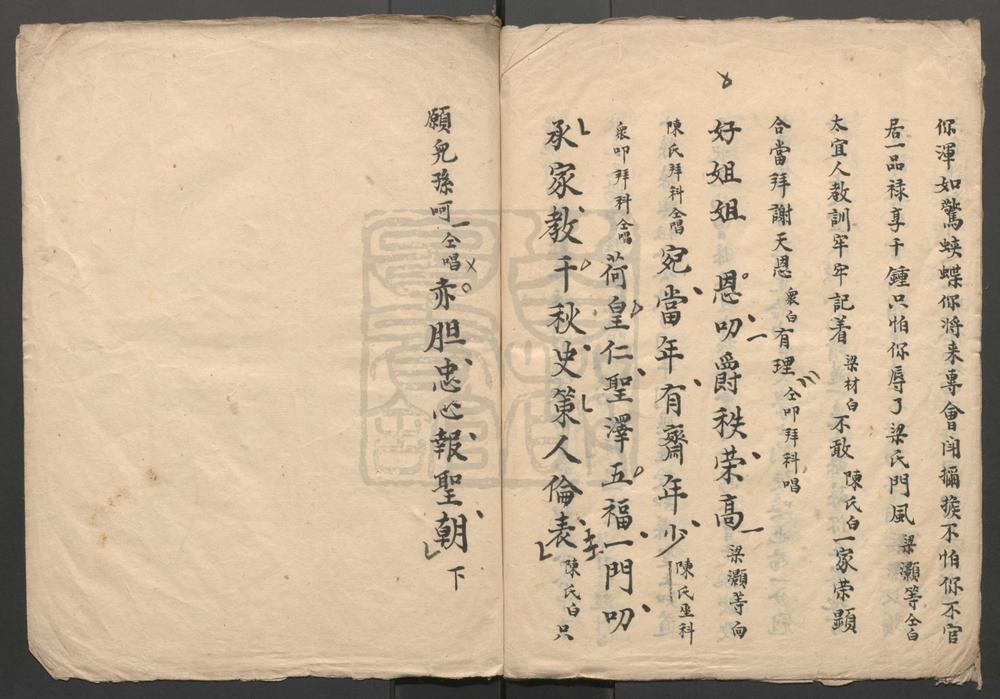 你渾如驚蛺蝶你將来專會闹獼猴不怕你不官
居一品禄享千鍾只怕你辱了梁氏門風梁灝等仝白
太宜人教訓牢牢記着梁材白不敢陳氏白一家荣顯
合當拜謝天恩衆白有理仝叩拜科唱
好姐姐 恩叨爵秩荣高梁灝等向
陳氏拜科仝唱宛當年有齋年少陳氏坐科
衆叩拜科仝唱荷皇仁聖澤五福一門叨
承家教千秋史策人倫表陳氏白只
願兒孫呵仝唱赤胆忠心報聖朝下